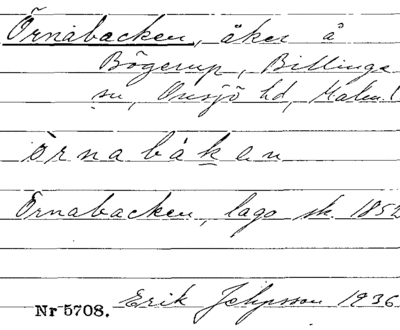 Örnabacken, åker å
Bögerup, Billinge
sn, Onsjö hd, Malm.l
örnabákan
Örnabacken, laga sk. 1852
Nr 5708. Erik Jeppsson 1936